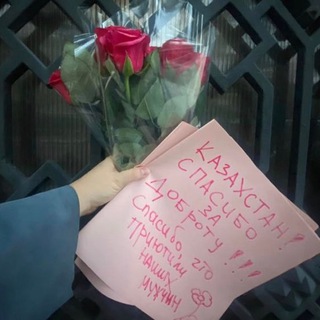 КАЗАХСТАН!
СПАСИБО
ЗА
ДОБРОТУ!!!
Спасибо, что
приютили
наших
мужчин